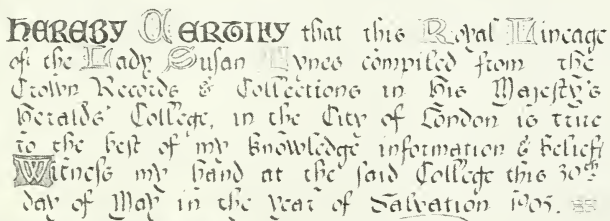 HEREBY CERTIFY that this Royal Lineage
of the Lady Susan Lynes compiled from the
Crown Records & Collections in His Majesty's
Heralds' College, in the City of London is true
to the best of my knowledge information & belief
Witness my hand at the said College this 30th
day of May in the year of Salvation 1905.